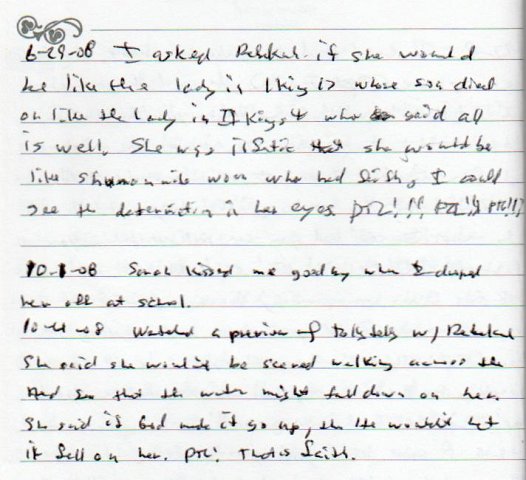 6-29-08 I asked Rebekah if she would
be like the lady in I Kings 17 whose son died
or like the lady in II Kings 4 who said all
is well. She was she would be
like woman who had faith, I could
see the in her eyes. PTL!!! PTL!!! PTL!!!
10-1-08 Sarah kissed me goodby when I droped
her off at school.
Watched a preview of w/ Rebekah
She said she wouldn't be scared walking across the
Red Sea that the water might fall down on her.
She said if God made it go up, the He wouldn't let
it fall on her. PTL! That is faith.